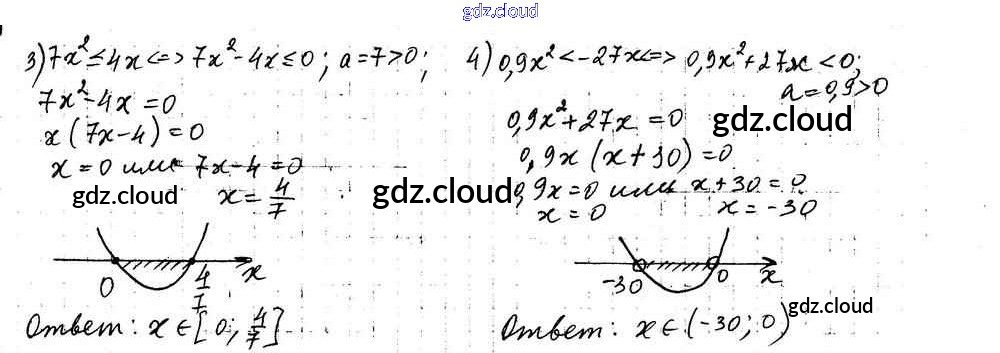 gdz.cloud
3) 7x² ≤ 4x <=> 7x² - 4x ≤ 0; a = 7 > 0;
7x² - 4x = 0
x(7x - 4) = 0
x = 0 или 7x - 4 = 0
gdz.cloud
x = 4/7
0 4/7 x
Ответ: x ∈ [0; 4/7]
4) 0,9x² < -27x <=> 0,9x² + 27x < 0;
a = 0,9 > 0
0,9x² + 27x = 0
gdz.cloud
0,9x(x + 30) = 0
gdz.cloud
0,9x = 0 или x + 30 = 0
x = 0 x = -30
-30 0 x
gdz.cloud
Ответ: x ∈ (-30; 0)